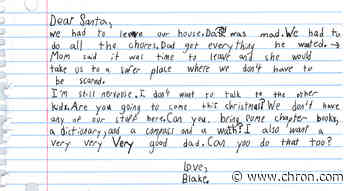 Dear Santa,
we had to leave our house. Dad was mad. We had to
do all the chores. Dad got everything he wanted. →
Mom said it was time to leave and she would
take us to a safer place where we don't have to
be scared.
I'm still nervous. I don't want to talk to the other
kids. Are you going to come this christmas? We don't have
any of our stuff here. Can you bring some chapter books,
a dictionary, and a compass and a watch? I also want a
very very very good dad. Can you do that too?
Love,
Blake
© www.chron.com